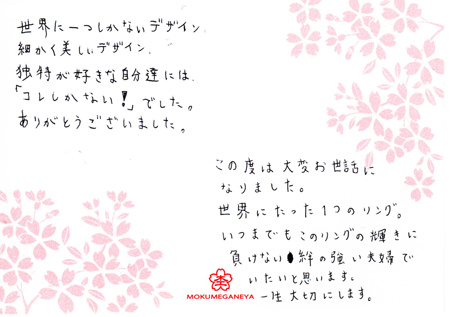 世界に一つしかないデザイン、
細かく美しいデザイン、
独特が好きな自分達には、
「コレしかない!」でした。
ありがとうございました。
この度は大変お世話に
なりました。
世界にたった1つのリング。
いつまでもこのリングの輝きに
負けない絆の強い夫婦で
いたいと思います。
一生大切にします。
MOKUMEGANEYA